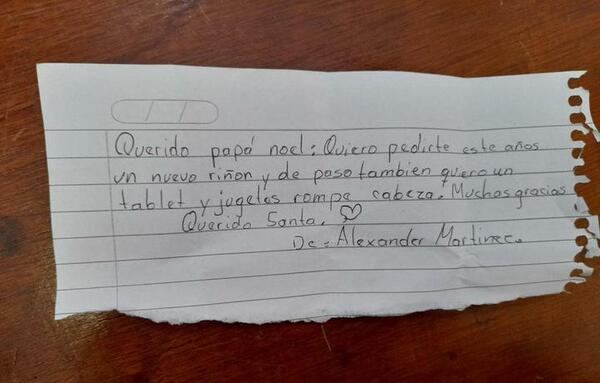 Querido papá noel: Quiero pedirte este años
un nuevo riñon y de paso tambien quero un
tablet y jugetes rompe cabeza. Muchas gracias
Querido Santa.
De: Alexander Martinez.